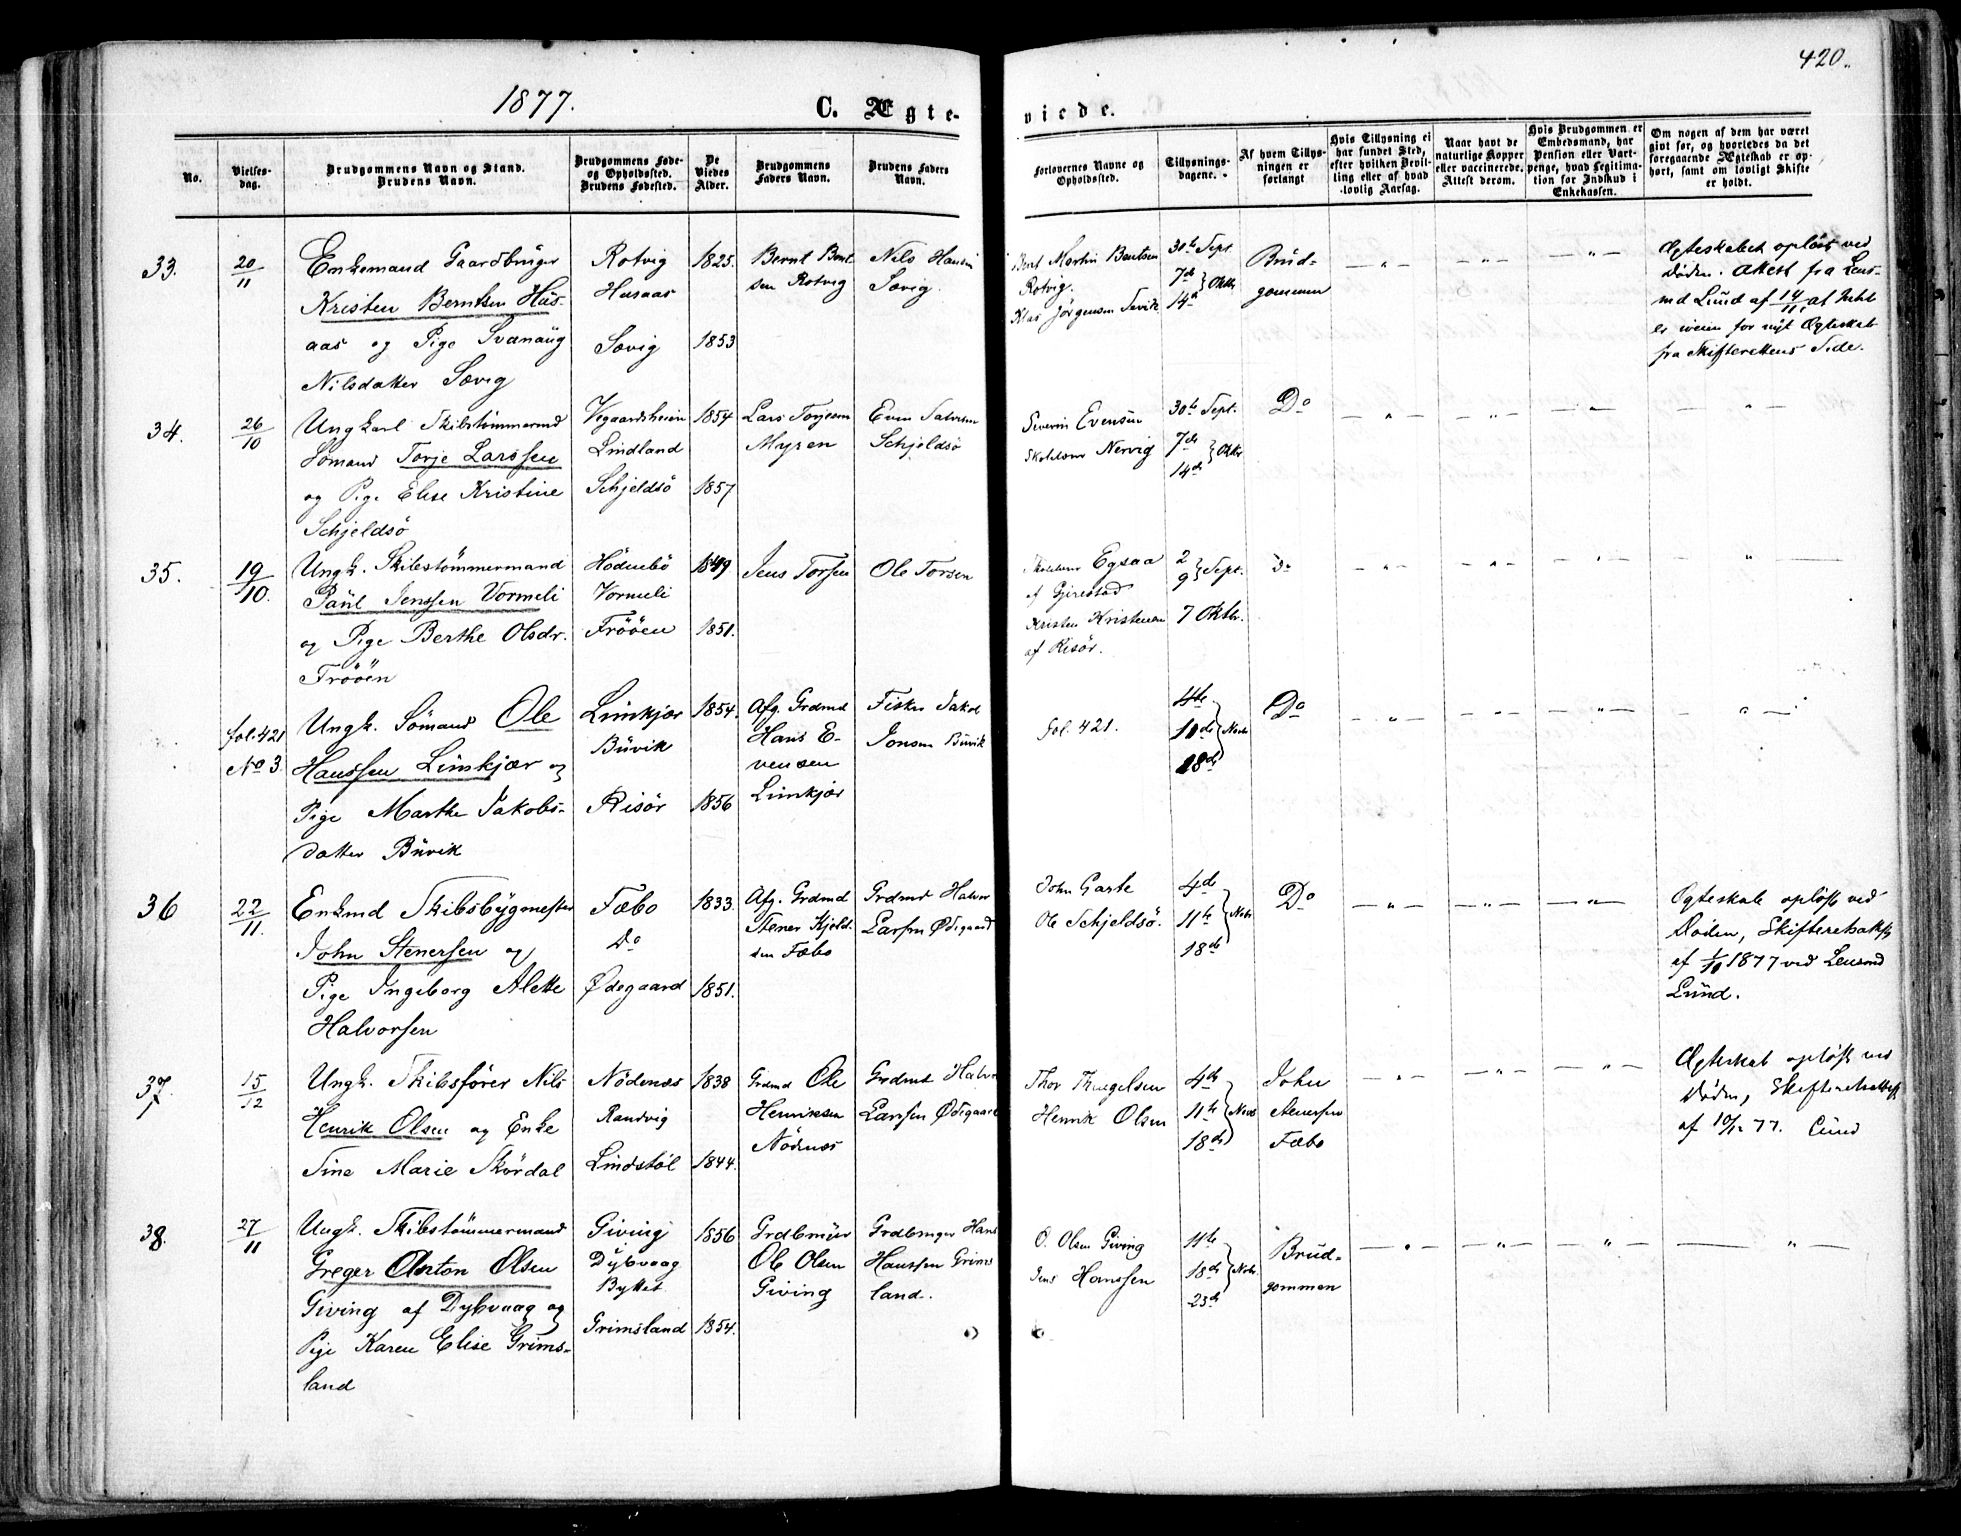 420.
1877.
C. Ægte-
viede.
No.
Vielses-
dag.
Brudgommens Navn og Stand.
Brudens Navn.
Brudgommens Føde-
og Opholdssted.
Brudens Fødested.
De
Viedes
Alder.
Brudgommens
Faders Navn.
Brudens Faders
Navn.
Forlovernes Navne og
Opholdssted.
Tillysnings-
dagene.
Af hvem Tillys-
ningen er
forlangt
Hvis Tillysning ei
har fundet Sted,
efter hvilken Bevil-
ling eller af hvad
lovlig Aarsag.
Naar havt de
naturlige Kopper
eller vaccinerede.
Attest derom.
Hvis Brudgommen er
Embedsmand, har
Pension eller Vart-
penge, hvad Legitima-
tion for Indskud i
Enkekassen.
Om nogen af dem har været
gift før, og hvorledes da det
foregaaende Ægteskab er op-
hørt, samt om lovligt Skifte
er holdt.
33.
20/11
Enkemand Gaardbruger
Kristen Berntsen Hus-
aas og Pige Svanaug
Nilsdatter Sævig
Rotvig
Husaas
Sævig
1825.
1853
Bernt Bent
sen Rotvig
Nils Hansen
Sævig.
Bent Martin Bentsen
Rotvig.
Klas Jørgensen Sevik
30te Sept.
7de
14de } Oktbr
Brud-
gommen
— „ —
— „ —
— „ —
Ægteskabet opløst ved
Døden. Attest fra Lens-
md Lund af 14/11, at Intet
er iveien for nyt Ægteskab
fra Skifterettens Side.
34.
26/10
Ungkarl Skibstømmermd
Sømand Torje Larssen
og Pige Elise Kristine
Schjeldsö
Vegaardsheien
Lindland
Schjeldsö
1854
1857
Lars Torjesen
Myren
Even Salvesen
Schjeldsö
Severin Evensen
Nervig
30te Sept.
7de
14de } Oktbr
Do
— „ —
— „ —
— „ —
— „ —
35.
19/10.
Ungk. Skibstömmermand
Paul Jenssen Vormeli
og Pige Berthe Olsdr.
Frööen
Hödnebö
Vormeli
Frööen
1849
1851.
Jens Torsen
Ole Torsen
Egsaa
af Gjerestad
Kristen Kristensen
af Risör.
2
9 } Sept.
7 Oktbr.
Do
— „ —
— „ —
— „ —
— „ —
fol. 421
No 3
Ungk. Sömand Ole
Hanssen Limkjær og
Pige Marthe Jakobs-
datter Buvik
Limkjær
Buvik
Risör
1854.
1856
Afg. Grdmd
Hans E-
vensen
Limkjær
Fisker Jakob
Jonsen Buvik
fol. 421.
4de
10de
18de } Novbr
Do
— „ —
— „ —
— „ —
— „ —
36
22/11.
Enkemd Skibsbygmester
John Stenersen og
Pige Ingeborg Alette
Halvorsen
Fæbo
Do
Ødegaard
1833.
1851.
Afg. Grdmd
Stener Kjeld-
sen Fæbo
Grdmd Halvor
Larsen Ødegaard
John Garte
Ole Schjeldsö.
4de
11te
18de } Nobr
Do
— „ —
— „ —
— „ —
Ægteskab opløst ved
Døden, Skifteretsatst
af 1/10 1877 ved Lensmd
Lund.
37.
15/12
Ungk. Skibsfører Nils
Henrik Olsen og Enke
Tine Marie Skördal
Nödenæs
Randvig
Lindstöl
1838
1844.
Grdmd Ole
Henriksen
Nödnæs
Grdmd Halvor
Larssen Ødegaard
Thor
Henrik Olsen
4de
11te
18de } Novbr
John
Stenersen
Fæbo
— „ —
— „ —
— „ —
Ægteskab opløst ved
Døden, Skifteretsattest
77. Lund
38.
27/11
Ungk. Skibstömmermand
Greger Anton Olsen
Giving af Dybvaag og
Pige Karen Elise Grims-
land
Giving
Dybvaag
Byttet
Grimsland
1856
1854.
Grdbruger
Ole Olsen
Giving
Grdbruger Hans
Hanssen Grims
land.
O. Olsen Giving
Jens Hanssen
11te
18de
23de } Nobr.
Brud-
gommen
— „ —
— „ —
— „ —
— „ —